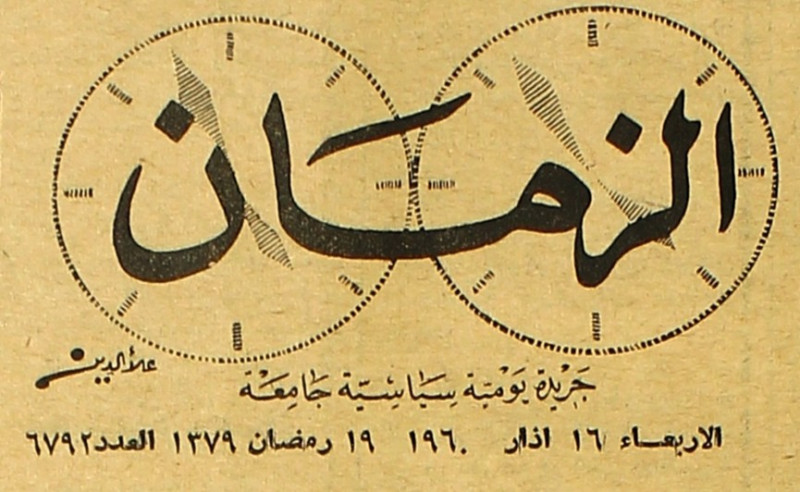 الزمان
علاءالدين
جريدة يومية سياسية جامعة
الاربعاء ١٦ اذار ١٩٦٠ ١٩ رمضان ١٣٧٩ العدد ٦٧٩٢